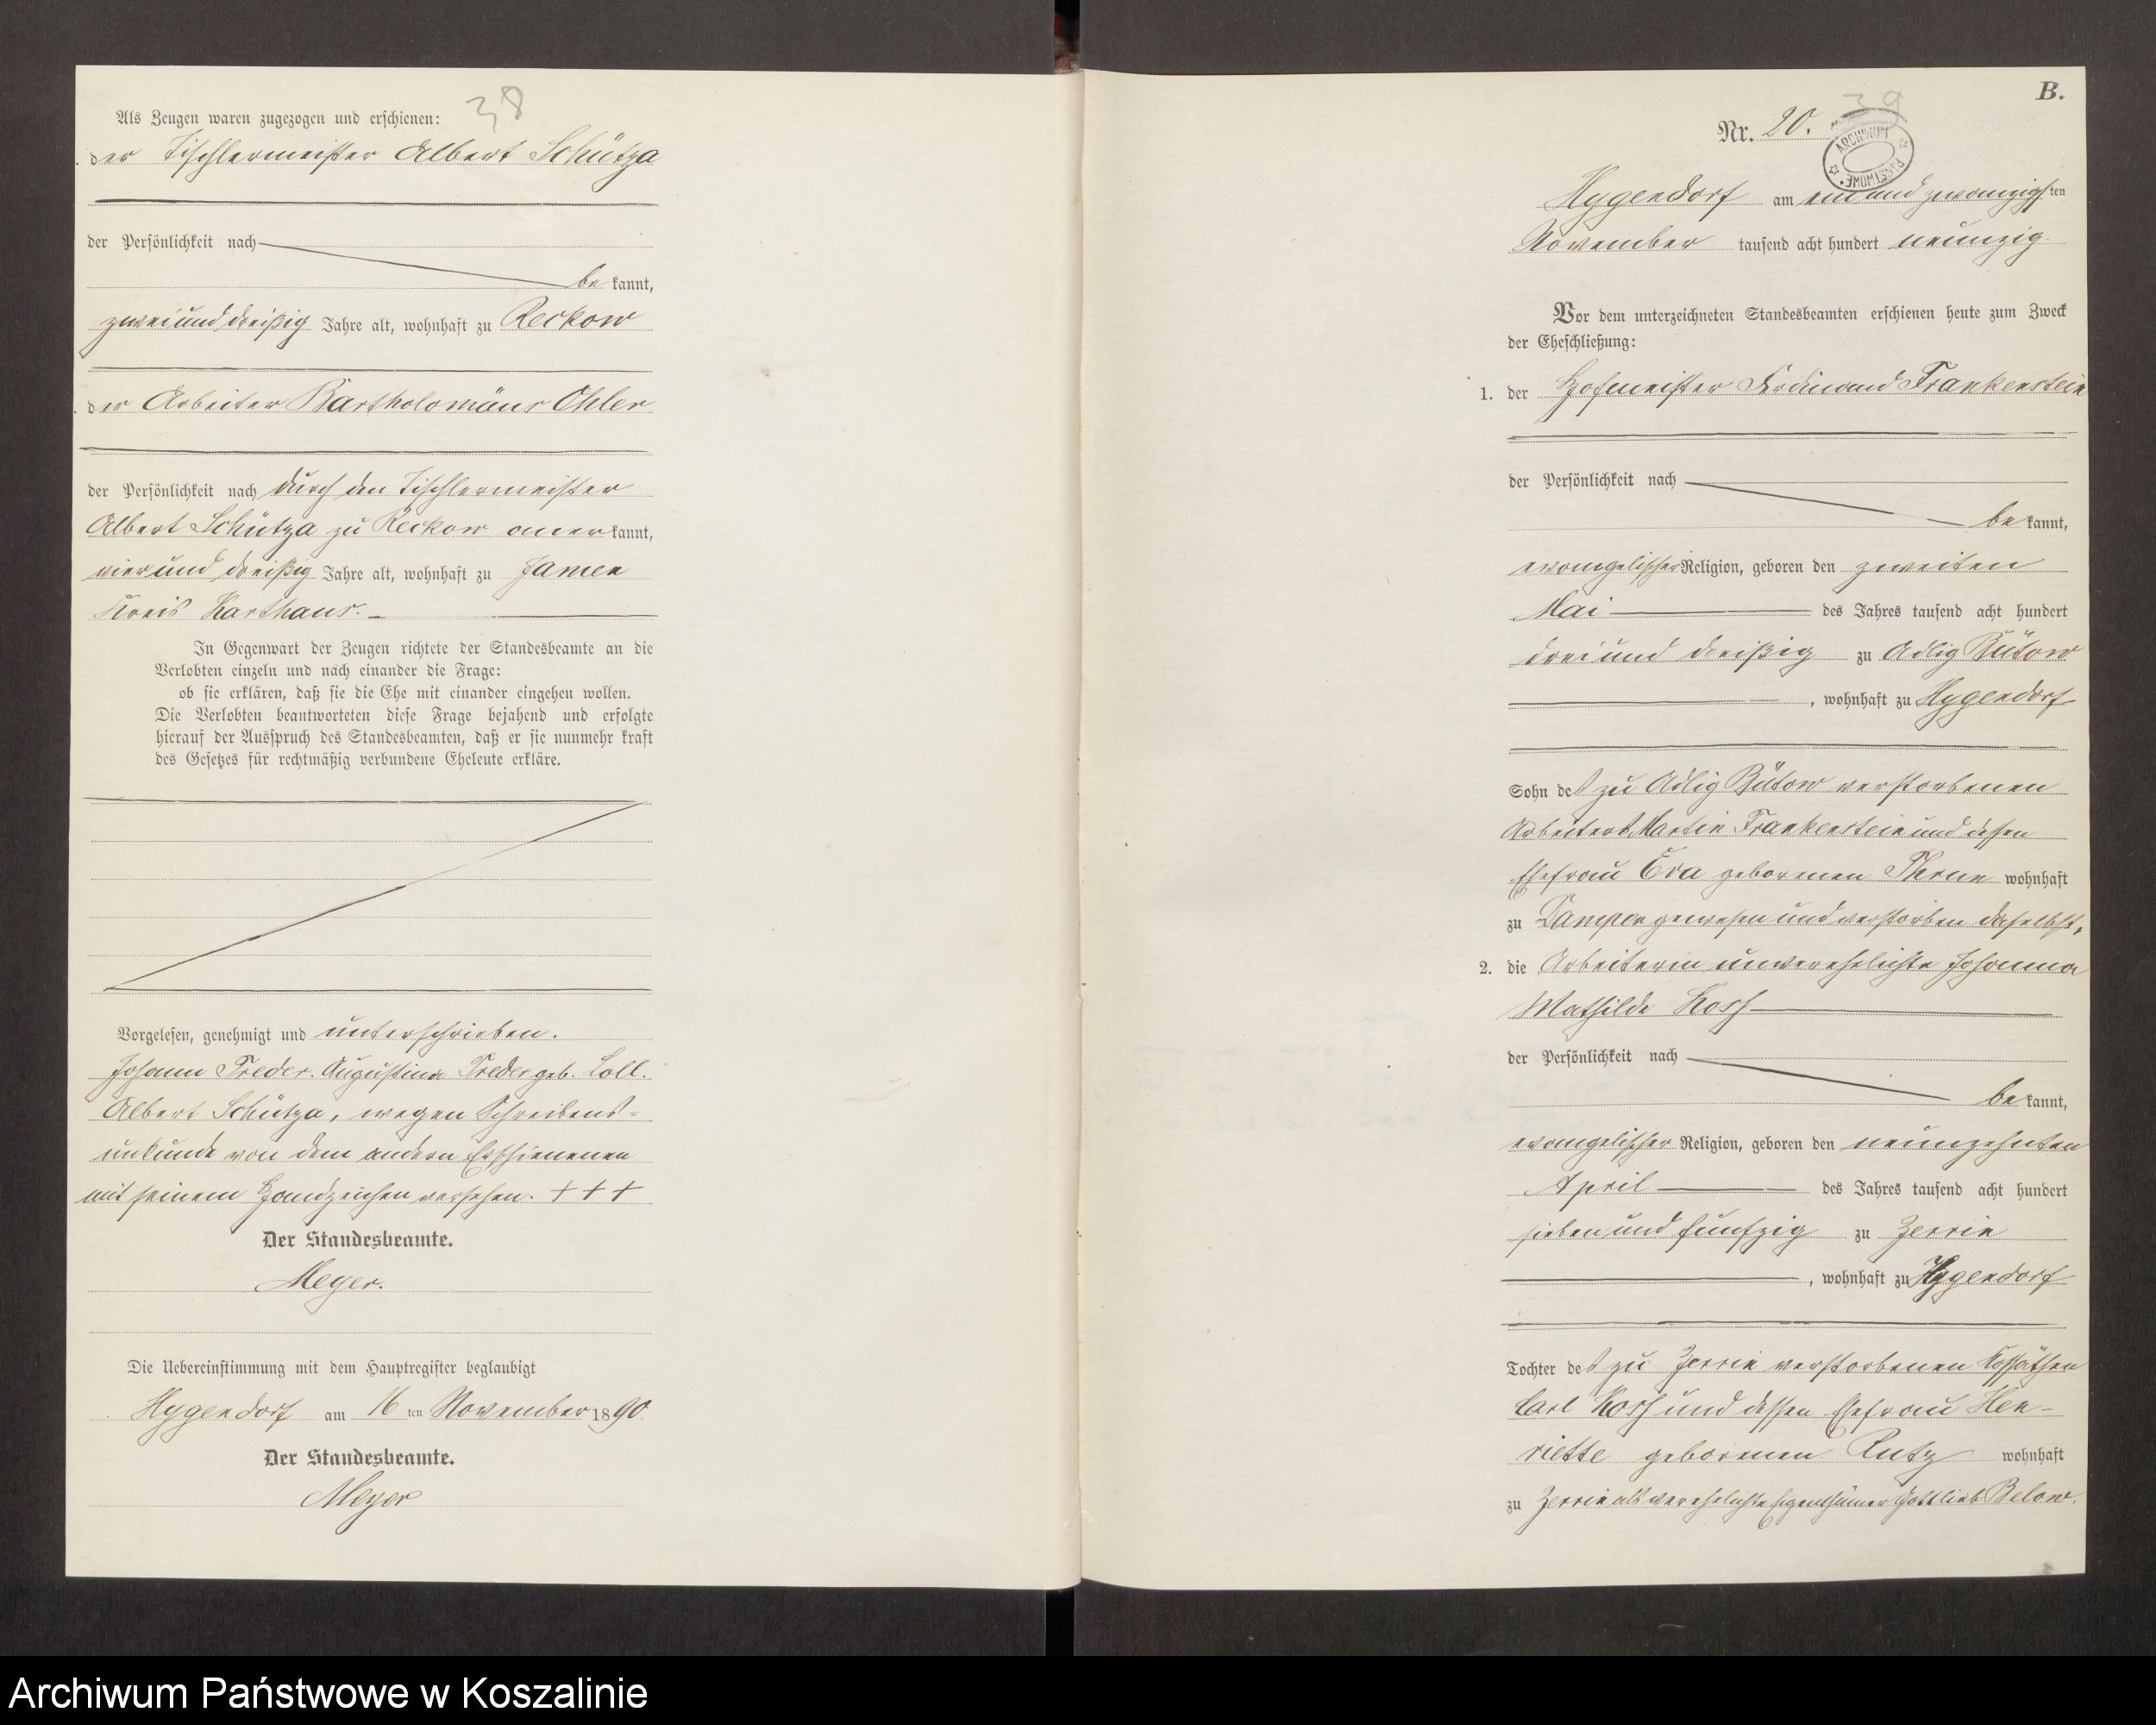 38
Als Zeugen waren zugezogen und erschienen:
der Tischlermeister Albert Schütza
der Persönlichkeit nach
be kannt,
zweiunddreißig Jahre alt, wohnhaft zu Reckow
der Arbeiter Bartholomäus Ohler
der Persönlichkeit nach durch den Tischlermeister
Albert Schütza zu Reckow aner kannt,
vierunddreißig Jahre alt, wohnhaft zu Jamen
Kreis Karthaus.
In Gegenwart der Zeugen richtete der Standesbeamte an die
Verlobten einzeln und nach einander die Frage:
ob sie erklären, daß sie die Ehe mit einander eingehen wollen.
Die Verlobten beantworteten diese Frage bejahend und erfolgte
hierauf der Ausspruch des Standesbeamten, daß er sie nunmehr kraft
des Gesetzes für rechtmäßig verbundene Eheleute erkläre.
Vorgelesen, genehmigt und unterschrieben.
Johann Treder. Augustina Treder geb. Loll.
Albert Schütza, wegen Schreibens-
unkunde von dem andern Erschienenen
mit seinem Handzeichen versehen. + + +
Der Standesbeamte.
Meyer.
Die Uebereinstimmung mit dem Hauptregister beglaubigt
Hygendorf am 16 ten November 1890.
Der Standesbeamte.
Meyer
B.
39
Nr. 20.
ARCHIWUM PAŃSTWOWE
Hygendorf am einundzwanzigsten
November tausend acht hundert neunzig
Vor dem unterzeichneten Standesbeamten erschienen heute zum Zweck
der Eheschließung:
1. der Hofmeister Ferdinand Frankenstein
der Persönlichkeit nach
be kannt,
evangelischer Religion, geboren den zweiten
Mai des Jahres tausend acht hundert
dreiunddreißig zu Adlig Bütow
, wohnhaft zu Hygendorf
Sohn des zu Adlig Bütow verstorbenen
Arbeiters Martin Frankenstein und dessen
Ehefrau Eva geborenen wohnhaft
zu gewesen und verstorben daselbst,
2. die Arbeiterin unverehelichte Johanna
Mathilde Kosh
der Persönlichkeit nach
be kannt,
evangelischer Religion, geboren den neunzehnten
April des Jahres tausend acht hundert
siebenundfünfzig zu Zerrin
, wohnhaft zu Hygendorf
Tochter des zu Zerrin verstorbenen Kossäthen
Carl Kosh und dessen Ehefrau Hen-
riette geborenen Rutz wohnhaft
zu Zerrin als verehelichte Eigenthümer Gottlieb Below.
Archiwum Państwowe w Koszalinie